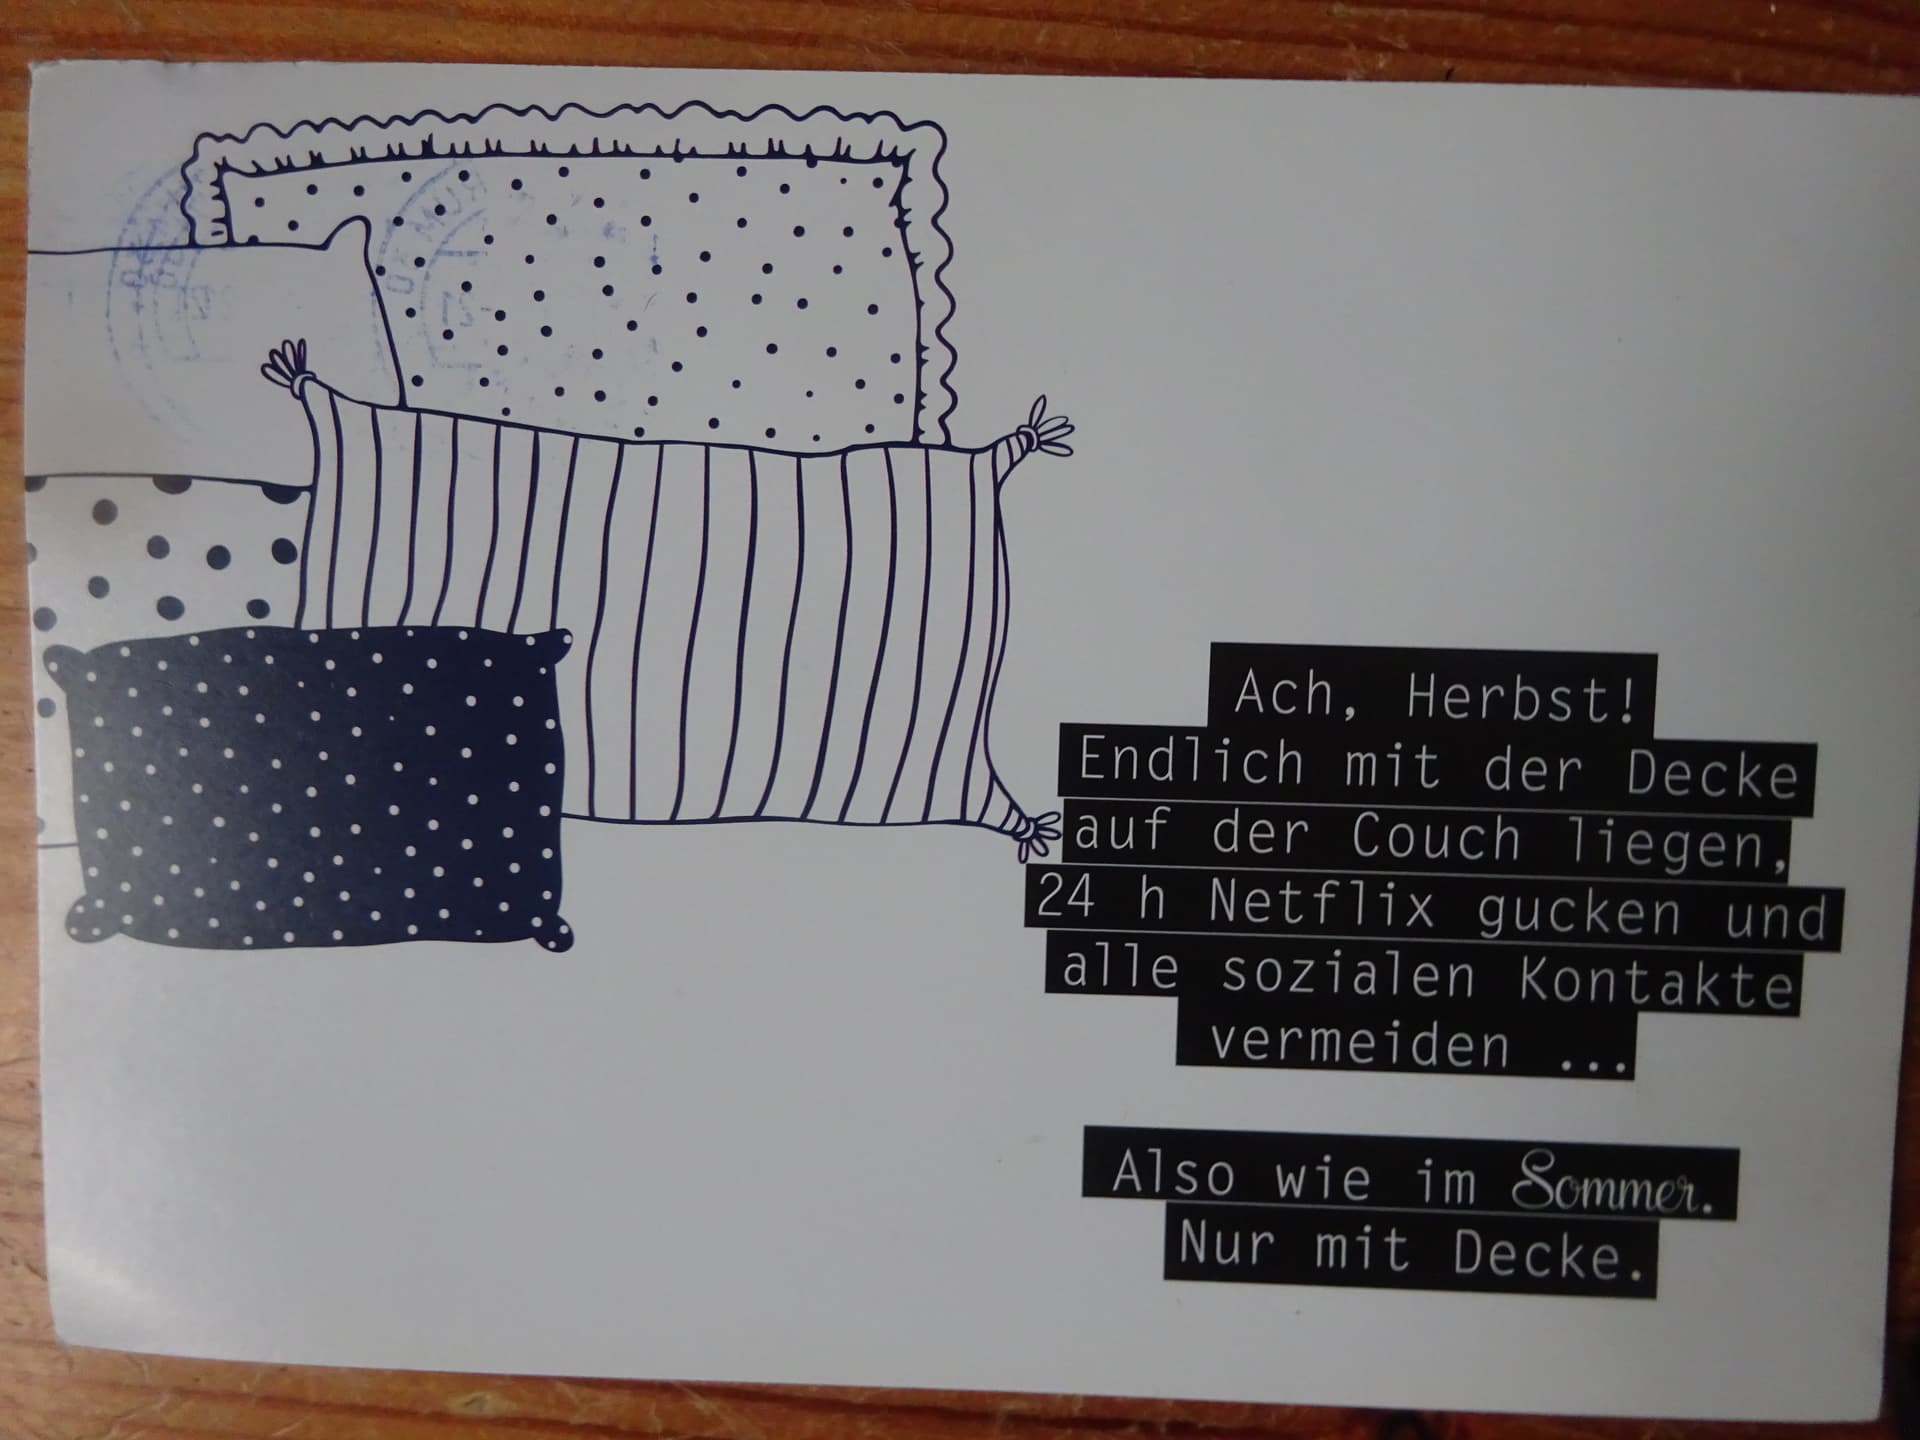 Ach, Herbst!
Endlich mit der Decke
auf der Couch liegen,
24 h Netflix gucken und
alle sozialen Kontakte
vermeiden ...
Also wie im Sommer.
Nur mit Decke.